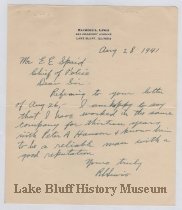 LAKE BLUFF, ILLINOIS
Aug 28 1941
Mr E E Speed
Chief of Police
Dear Sir
Refering to your letter
of Aug 26, I am happy to say
that I have worked in the same
company for thirteen years
with Peter A Hanson & know him
to be a reliable man with a
good reputation
Yours truly
Lake Bluff History Museum